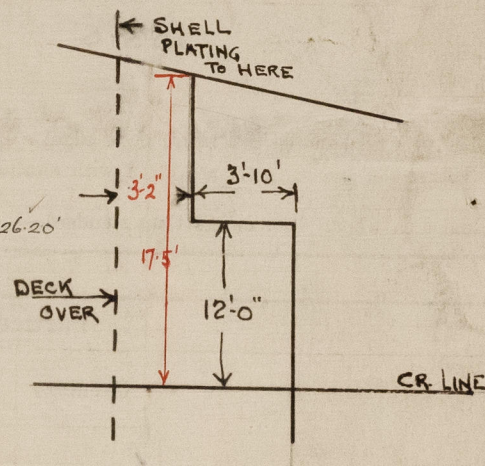 SHELL
PLATING
TO HERE
3'-2"
3'-10'
26.20'
17.5'
DECK
OVER
12'-0"
CR. LINE